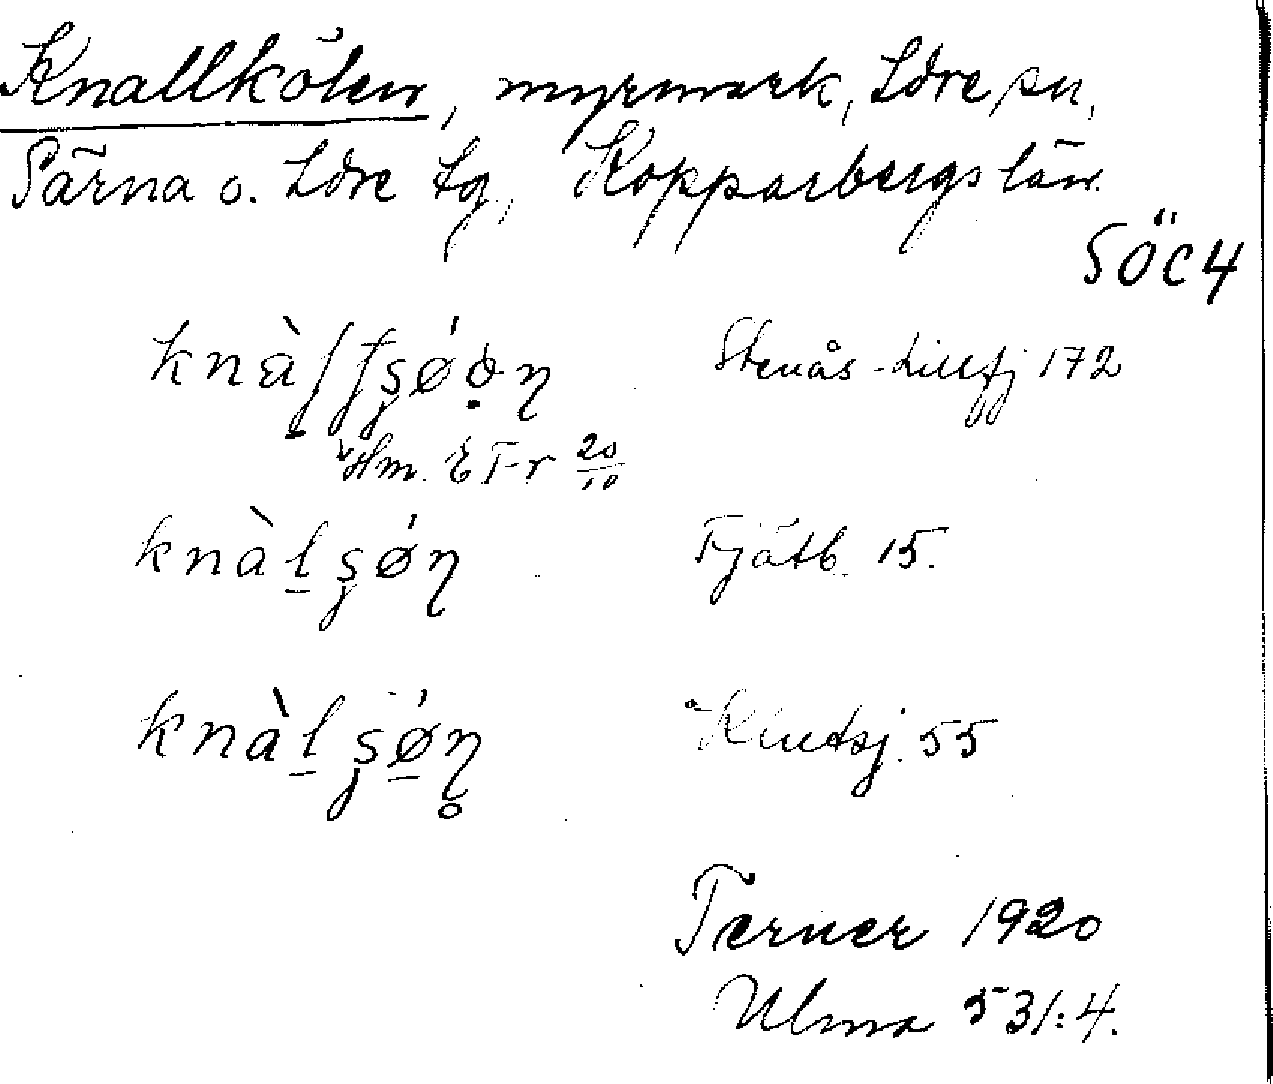 Knallkölen, myrmark, Idre sn,
Särna o. Idre tg, Kopparbergs län.
SÖC4
Stenås-Lillfj 172
Hm. E Fr 20/10
knàl̠ʂǿŋ Fjätb. 15.
knàl̠ʂǿ̠ŋ̥ 55
Terner 1920
Ulma 531:4.